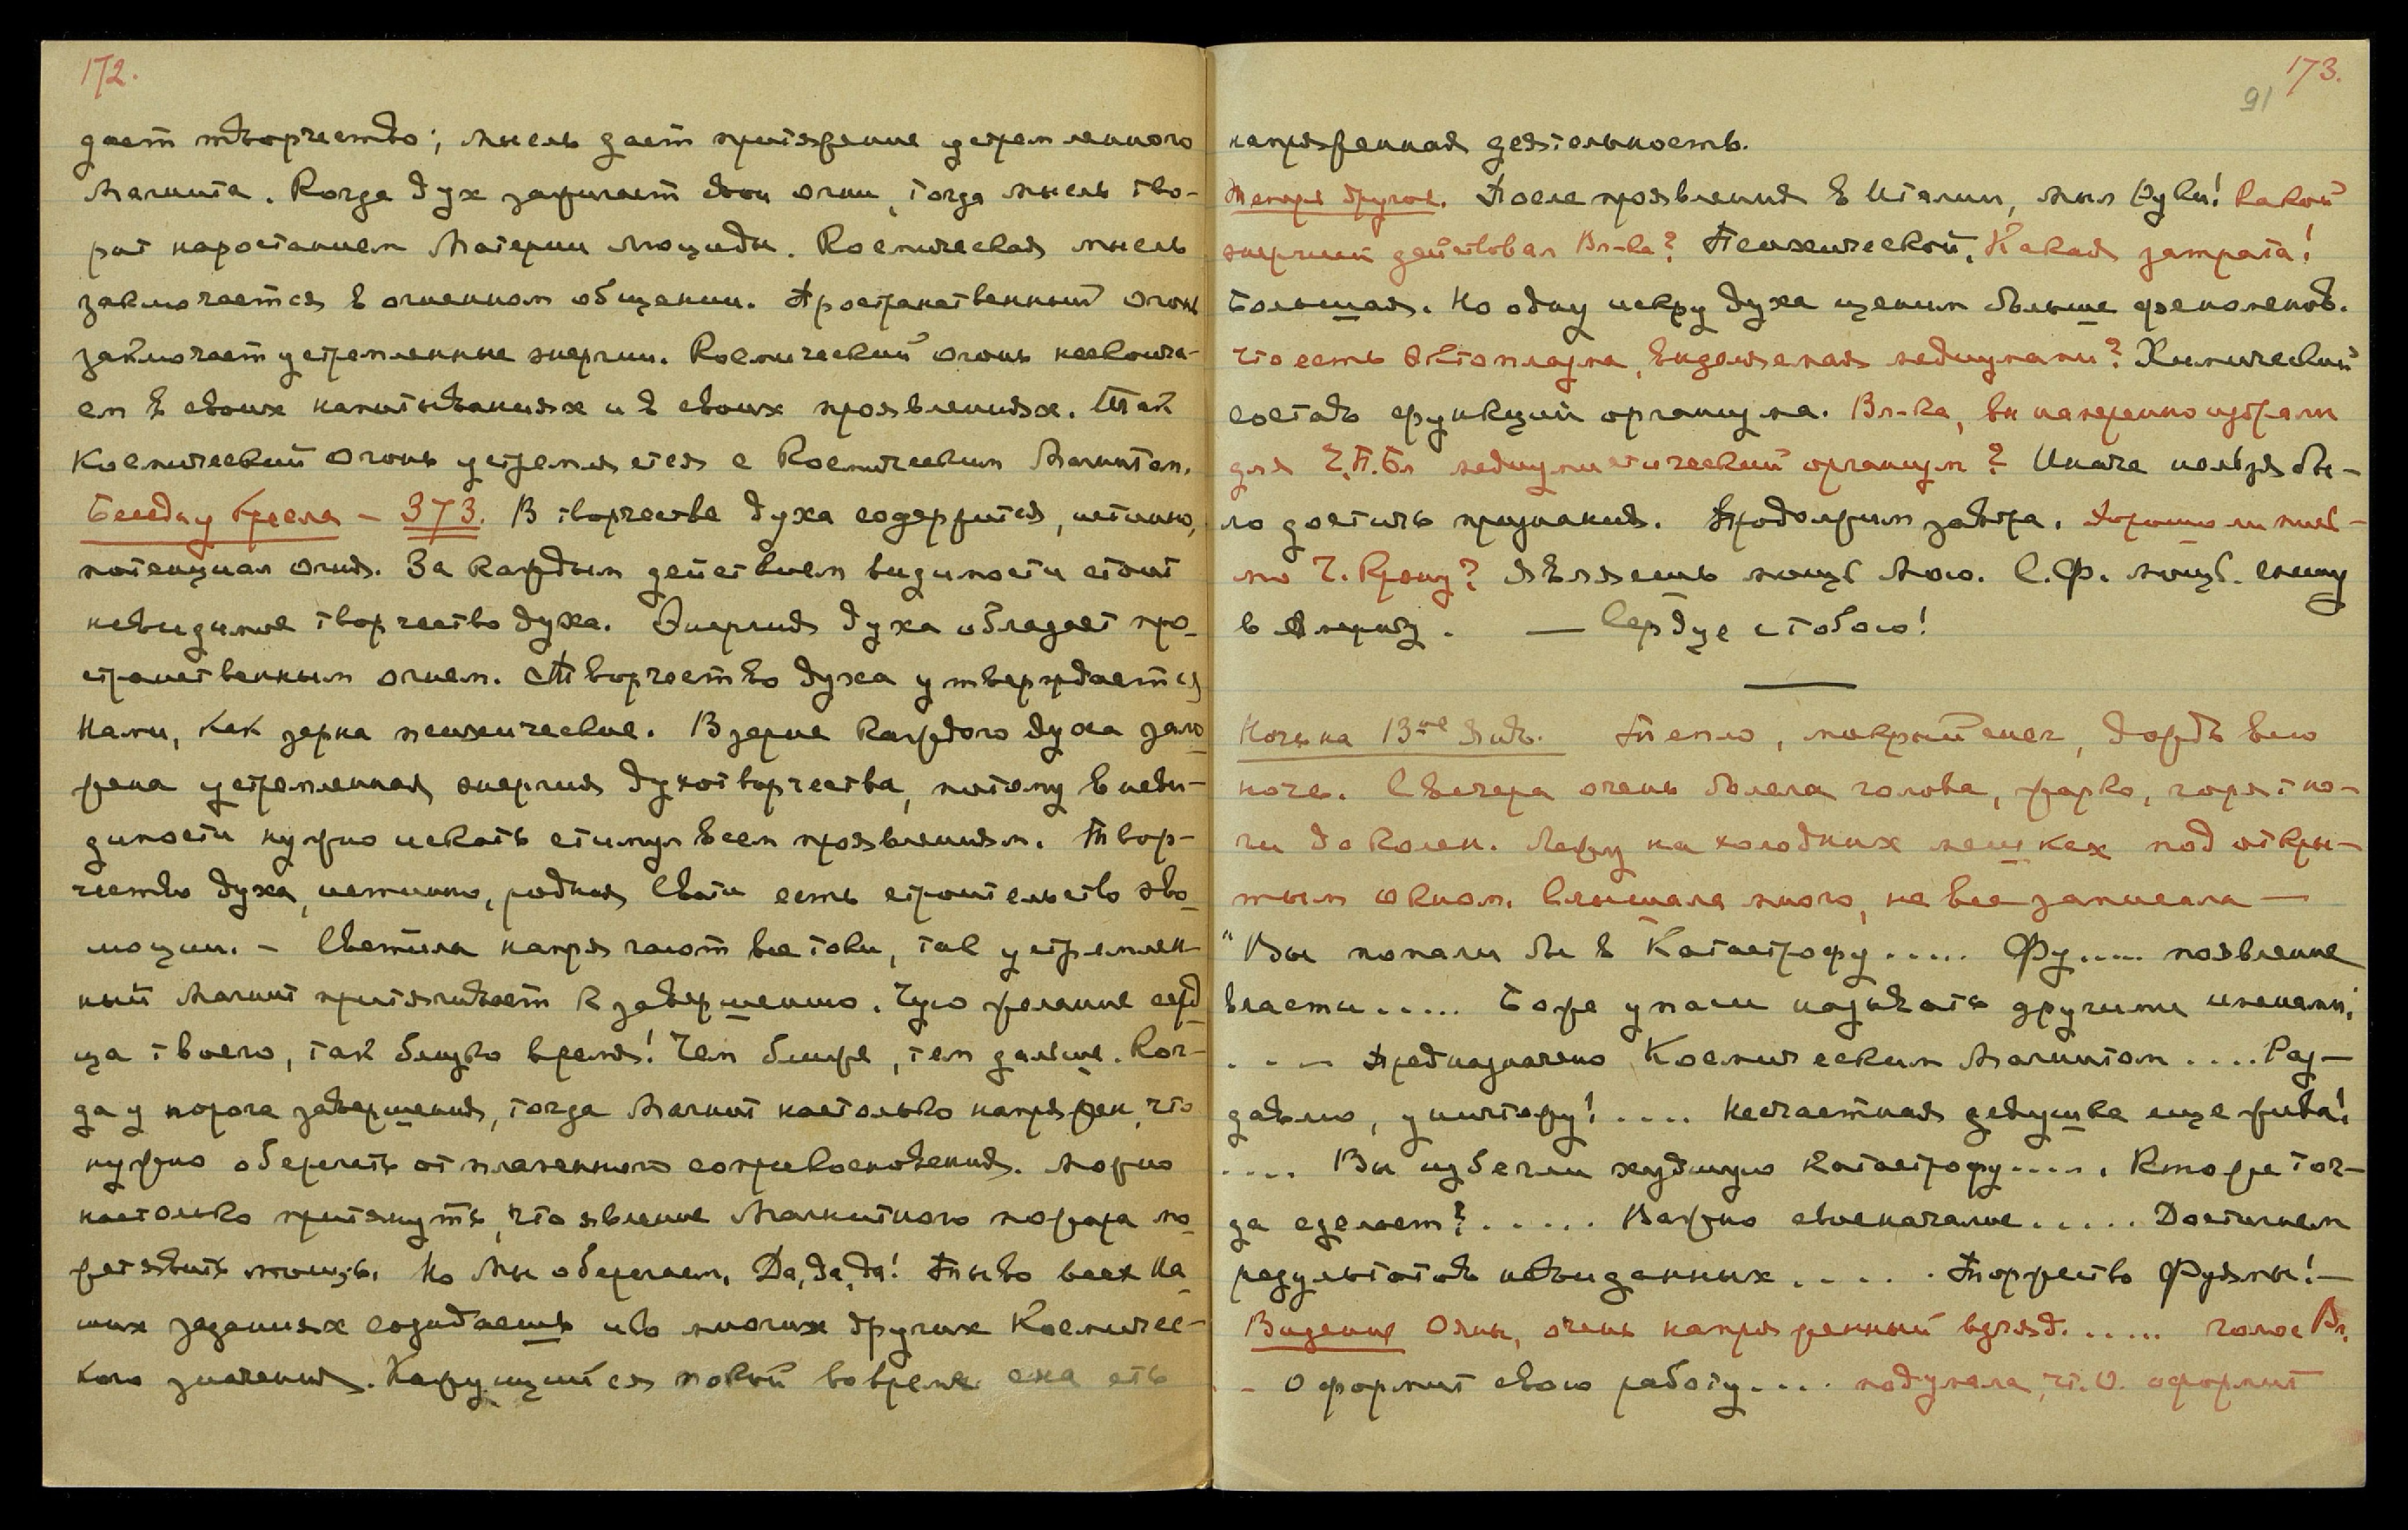 172.
дает творчество; мысль дает притяжение устремленного
Магнита. Когда дух зажигает свои огни, тогда мысль тво-
рит наростанием Материи Люциды. Космическая мысль
заключается в огненном общении. Пространственный Огонь
заключает устремленные энергии. Космический огонь несконча-
ем в своих напитываниях и в своих проявлениях. Так
Космический Огонь устремляется с Космическим Магнитом.
Беседа у Кресла – 373. В творчестве духа содержится, истинно,
потенциал огня. За каждым действием видимости стоит
невидимое творчество духа. Энергия духа обладает про-
странственным огнем. Творчество духа утверждается
Нами, как зерна психические. В зерне каждого духа зало-
жена устремленная энергия духотворчества, потому в неви-
димости нужно искать стимул всем проявлениям. Твор-
чество духа, истинно, родная Свати есть строительство эво-
люции. – Светила напрягают все токи, так устремлен-
ный Магнит притягивает к завершению. Чую желание серд-
ца твоего, так близко время! Чем ближе, тем дальше. Ког-
да у порога завершения, тогда Магнит настолько напряжен, что
нужно оберегать от пламенного соприкосновения. Можно
настолько притянуть, что явление Магнитного пожара мо-
жет явить мощь. Но Мы оберегаем. Да, да, да! Ты во всех На-
ших заданиях созидаешь и во многих других Космичес-
кого значения. Кажущийся покой во время сна есть
173.
91
напряженная деятельность.
Теперь другое. После проявления в Италии, мыл руки! Какой
энергией действовал Вл-ка? Психической. Какая затрата!
Большая. Но одну искру духа ценим больше феноменов.
Что есть Эктоплазма, выделяемая медиумами? Химический
состав функций организма. Вл-ка, вы намеренно избрали
для Е.П.Бл медиумистический организм? Иначе нельзя бы-
ло достичь признания. Продолжим завтра. Хорошо ли пись-
мо Ч. Крону? Являешь мощь Мою. С.Ф. мощь. спешу
в Америку. — Сердце с тобою!
Ночь на 13ое Янв. Тепло, мокрый снег, дождь всю
ночь. С вечера очень болела голова, жарко, горят но-
ги до колен. Лежу на холодных мешках под откры-
тым окном. Слышала много, не все записала –
"Вы попали бы в Катастрофу ..... Фу..... появление
власти..... Боже упаси называть другими именами;
. . – Предназначено Космическим Магнитом .... Раз-
давлю, уничтожу! .... Несчастная девушка еще жива!
.... Вы избегли худшую катастрофу..... Кто же тог-
да сделает? ..... Важно своеначалие..... Достигнем
результатов невиданных ..... Торжество Фуямы! –
Видение Ояны, очень напряженный взгляд...... голос Вл.
– Оформит свою работу.... подумала, чт. О. оформит